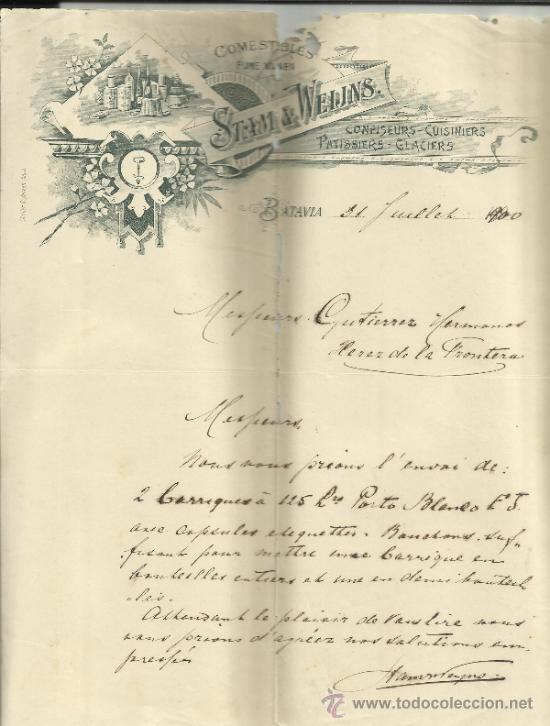 COMESTIBLES
STAM & WEIJNS.
CONFISEURS-CUISINIERS
PATISSIERS-GLACIERS
BATAVIA 31 Juillet 1900
Messieurs Gutierrez Hermanos
Xerez de la Frontera
Messieurs
Nous vous prions l'envoi de:
2 Barriques à 125 Lrs Porto Blanco
avec capsules etiquettes. Bouchons suf-
fisant pour mettre une Barrique en
bouteilles entiers et une en demi bouteil
les.
Attendant le plaisir de vous lire nous
vous prions d'agréez nos salutions em
pressées
todocoleccion.net